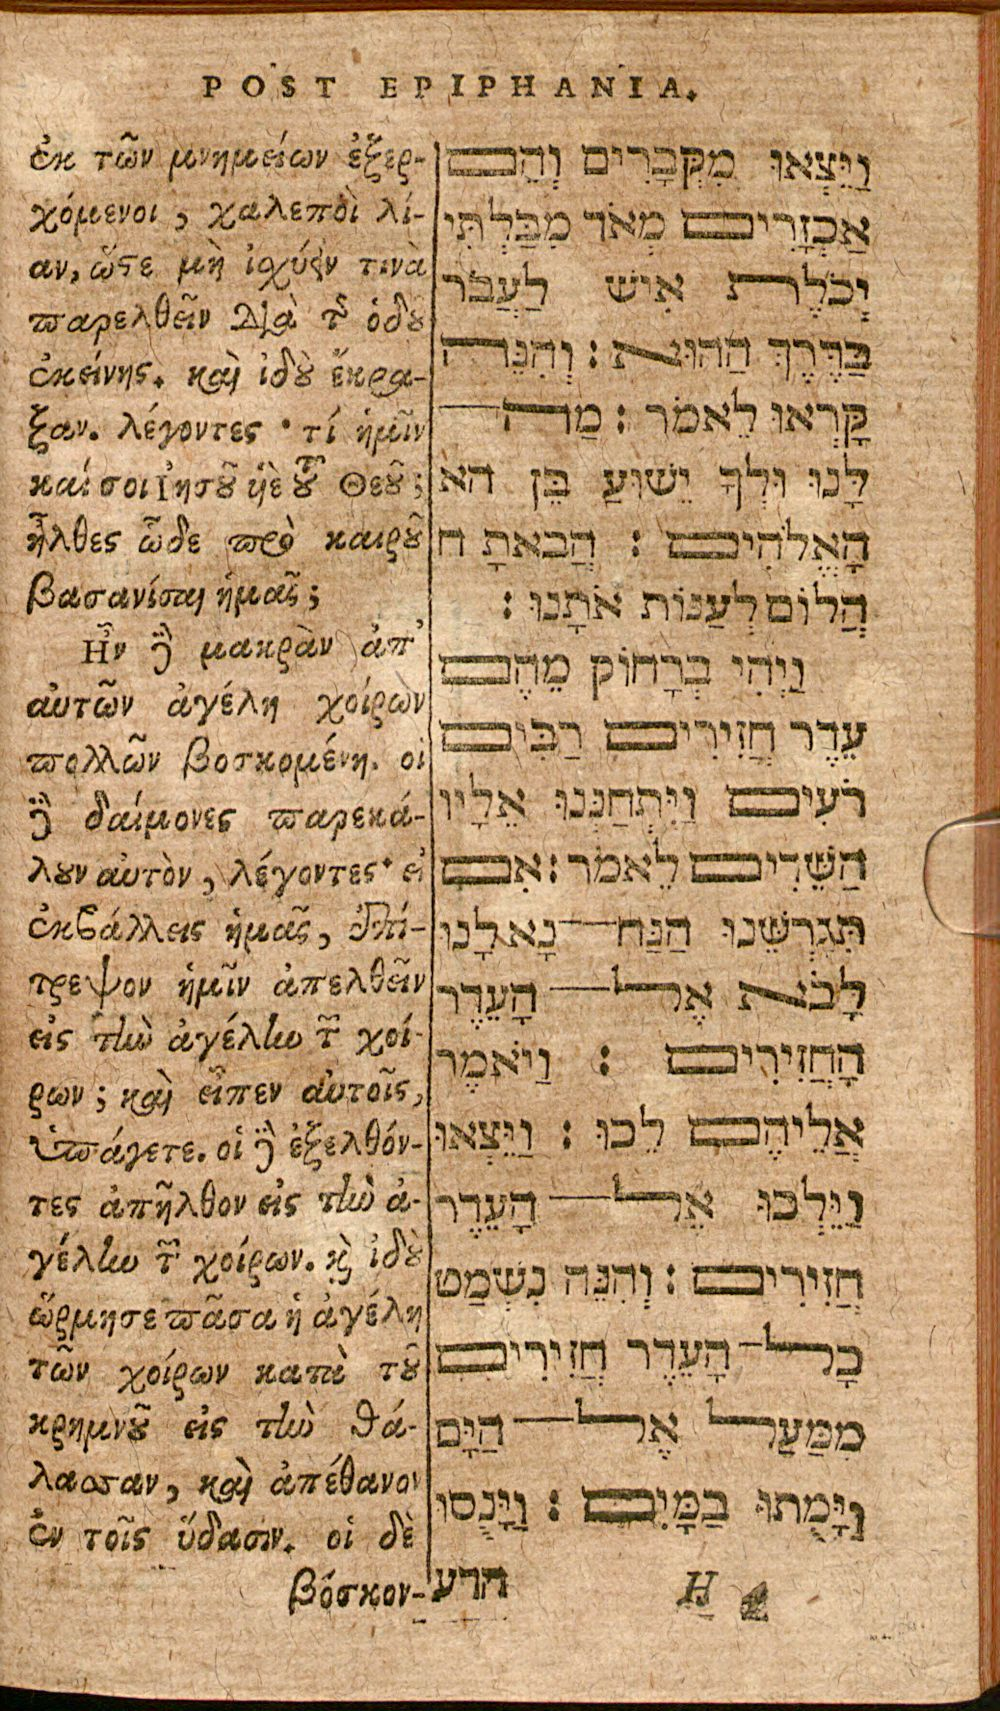 POST EPIPHANIA.
ἐκ τῶν μνημείων ἐξερ-
χόμενοι, χαλεποὶ λί-
αν, ὥστε μὴ ἰσχύειν τινὰ
παρελθεῖν διὰ τῆς ὁδοῦ
ἐκείνης. καὶ ἰδοὺ ἔκρα-
ξαν. λέγοντες· τί ἡμῖν
καί σοι Ἰησοῦ ὑὲ τοῦ Θεοῦ;
ἦλθες ὧδε πρὸ καιροῦ
βασανίσαι ἡμᾶς;
Ἦν δὲ μακρὰν ἀπ᾽
αὐτῶν ἀγέλη χοίρων
πολλῶν βοσκομένη. οἱ
δὲ δαίμονες παρεκά-
λουν αὐτὸν, λέγοντες· εἰ
ἐκβάλλεις ἡμᾶς, ἐπί-
τρεψον ἡμῖν ἀπελθεῖν
εἰς τὴν ἀγέλην τῶν χοί-
ρων; καὶ εἶπεν αὐτοῖς,
ὑπάγετε. οἱ δὲ ἐξελθόν-
τες ἀπῆλθον εἰς τὴν ἀ-
γέλην τῶν χοίρων. καὶ ἰδοὺ
ὥρμησε πᾶσα ἡ ἀγέλη
τῶν χοίρων κατὰ τοῦ
κρημνοῦ εἰς τὴν θά-
λασσαν, καὶ ἀπέθανον
ἐν τοῖς ὕδασιν. οἱ δὲ
βόσκον-
וַיֵּצְאוּ מִקְּבָרִים וְהֵם
אַכְזָרִים מְאֹד מִבַּלְתִּי
יְכֹלֶת אִישׁ לַעֲבֹר
בַּדֶּרֶךְ הַהוּא : וְהִנֵּה
קָרְאוּ לֵאמֹר : מַה
לָּנוּ וּלְךָ יֵשׁוּעַ בֵּן הא
הָאֱלֹהִים : הֲבָאתָ ח
הֲלוֹם לְעַנּוֹת אֹתָנוּ :
וַיְהִי בְּרָחוֹק מֵהֶם
עֵדֶר חֲזִירִים רַבִּים
רֹעִים וַיִּתְחַנְּנוּ אֵלָיו
הַשֵּׁדִים לֵאמֹר : אִם
תְּגָרְשֵׁנוּ הַנַּח נָא לָנוּ
לָבֹא אֶל הָעֵדֶר
הָחֲזִירִים : וַיֹּאמֶר
אֲלֵיהֶם לֵכוּ : וַיֵּצְאוּ
וַיֵּלְכוּ אֶל הָעֵדֶר
חֲזִירִים : וְהִנֵּה נִשְׁמַט
כָּל הָעֵדֶר חֲזִירִים
מִמַּעַל אֶל הַיָּם
וַיָּמֻתוּ בַמָּיִם : וַיָּנֻסוּ
הרע
H